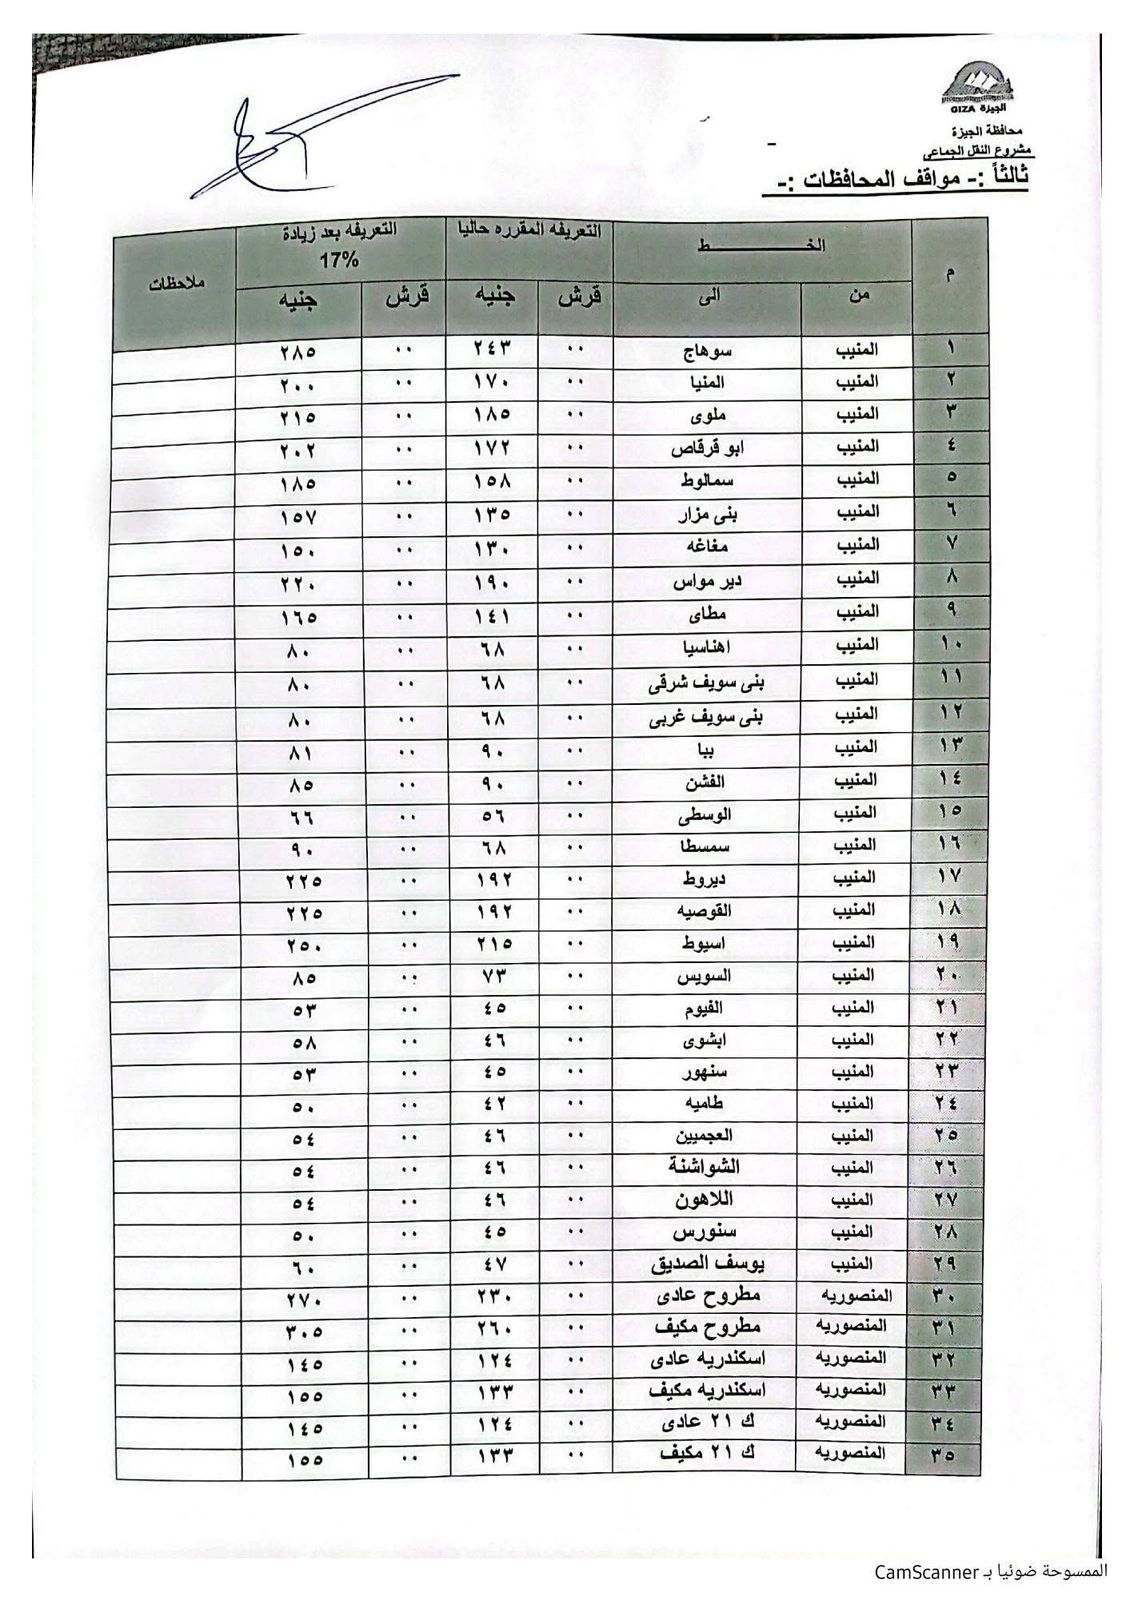 GIZA الجيزة
محافظة الجيزة
مشروع النقل الجماعى
ثالثاً :- مواقف المحافظات :-
م الخط التعريفه المقرره حاليا التعريفه بعد زيادة 17% ملاحظات
من الى قرش جنيه قرش جنيه
١ المنيب سوهاج ٠٠ ٢٤٣ ٠٠ ٢٨٥
٢ المنيب المنيا ٠٠ ١٧٠ ٠٠ ٢٠٠
٣ المنيب ملوى ٠٠ ١٨٥ ٠٠ ٢١٥
٤ المنيب ابو قرقاص ٠٠ ١٧٢ ٠٠ ٢٠٢
٥ المنيب سمالوط ٠٠ ١٥٨ ٠٠ ١٨٥
٦ المنيب بنى مزار ٠٠ ١٣٥ ٠٠ ١٥٧
٧ المنيب مغاغه ٠٠ ١٣٠ ٠٠ ١٥٠
٨ المنيب دير مواس ٠٠ ١٩٠ ٠٠ ٢٢٠
٩ المنيب مطاى ٠٠ ١٤١ ٠٠ ١٦٥
١٠ المنيب اهناسيا ٠٠ ٦٨ ٠٠ ٨٠
١١ المنيب بنى سويف شرقى ٠٠ ٦٨ ٠٠ ٨٠
١٢ المنيب بنى سويف غربى ٠٠ ٦٨ ٠٠ ٨٠
١٣ المنيب ببا ٠٠ ٩٠ ٠٠ ٨١
١٤ المنيب الفشن ٠٠ ٩٠ ٠٠ ٨٥
١٥ المنيب الوسطى ٠٠ ٥٦ ٠٠ ٦٦
١٦ المنيب سمسطا ٠٠ ٦٨ ٠٠ ٩٠
١٧ المنيب ديروط ٠٠ ١٩٢ ٠٠ ٢٢٥
١٨ المنيب القوصيه ٠٠ ١٩٢ ٠٠ ٢٢٥
١٩ المنيب اسيوط ٠٠ ٢١٥ ٠٠ ٢٥٠
٢٠ المنيب السويس ٠٠ ٧٣ ٠٠ ٨٥
٢١ المنيب الفيوم ٠٠ ٤٥ ٠٠ ٥٣
٢٢ المنيب ابشوى ٠٠ ٤٦ ٠٠ ٥٨
٢٣ المنيب سنهور ٠٠ ٤٥ ٠٠ ٥٣
٢٤ المنيب طاميه ٠٠ ٤٢ ٠٠ ٥٠
٢٥ المنيب العجميين ٠٠ ٤٦ ٠٠ ٥٤
٢٦ المنيب الشواشنة ٠٠ ٤٦ ٠٠ ٥٤
٢٧ المنيب اللاهون ٠٠ ٤٦ ٠٠ ٥٤
٢٨ المنيب سنورس ٠٠ ٤٥ ٠٠ ٥٠
٢٩ المنيب يوسف الصديق ٠٠ ٤٧ ٠٠ ٦٠
٣٠ المنصوريه مطروح عادى ٠٠ ٢٣٠ ٠٠ ٢٧٠
٣١ المنصوريه مطروح مكيف ٠٠ ٢٦٠ ٠٠ ٣٠٥
٣٢ المنصوريه اسكندريه عادى ٠٠ ١٢٤ ٠٠ ١٤٥
٣٣ المنصوريه اسكندريه مكيف ٠٠ ١٣٣ ٠٠ ١٥٥
٣٤ المنصوريه ك ٢١ عادى ٠٠ ١٢٤ ٠٠ ١٤٥
٣٥ المنصوريه ك ٢١ مكيف ٠٠ ١٣٣ ٠٠ ١٥٥
الممسوحة ضوئيا بـ CamScanner